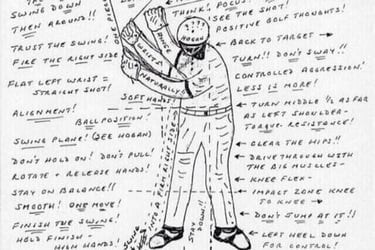 SWING DOWN
THEN AROUND!!
TRUST THE SWING!
FIRE THE RIGHT SIDE
FLAT LEFT WRIST =
STRAIGHT SHOT!
SOFT HANDS!
ALIGNMENT!
BALL POSITION!
SWING PLANE! (SEE HOGAN)
DON'T HOLD ON! DON'T PULL!
ROTATE + RELEASE HANDS!
STAY ON BALANCE!!
SMOOTH! ONE MOVE!
FINISH THE SWING!
HOLD FINISH =
HIGH HANDS!
ONE PIECE
HINGE
WRISTS
NATURALLY!
HOGAN
FIRE RIGHT SIDE
STAY DOWN!!
THINK! FOCUS!
SEE THE SHOT!
POSITIVE GOLF THOUGHTS!
BACK TO TARGET
TURN!! DON'T SWAY!!
CONTROLLED AGGRESSION!
LESS IS MORE!
TURN MIDDLE 1/2 AS FAR
AS LEFT SHOULDER-
TORQUE. RESISTANCE!
CLEAR THE HIPS!!
DRIVE THROUGH WITH
THE BIG MUSCLES!
KNEE FLEX-
IMPACT ZONE KNEE
TO KNEE
DON'T JUMP AT IT!!
LEFT HEEL DOWN
FOR CONTROL!